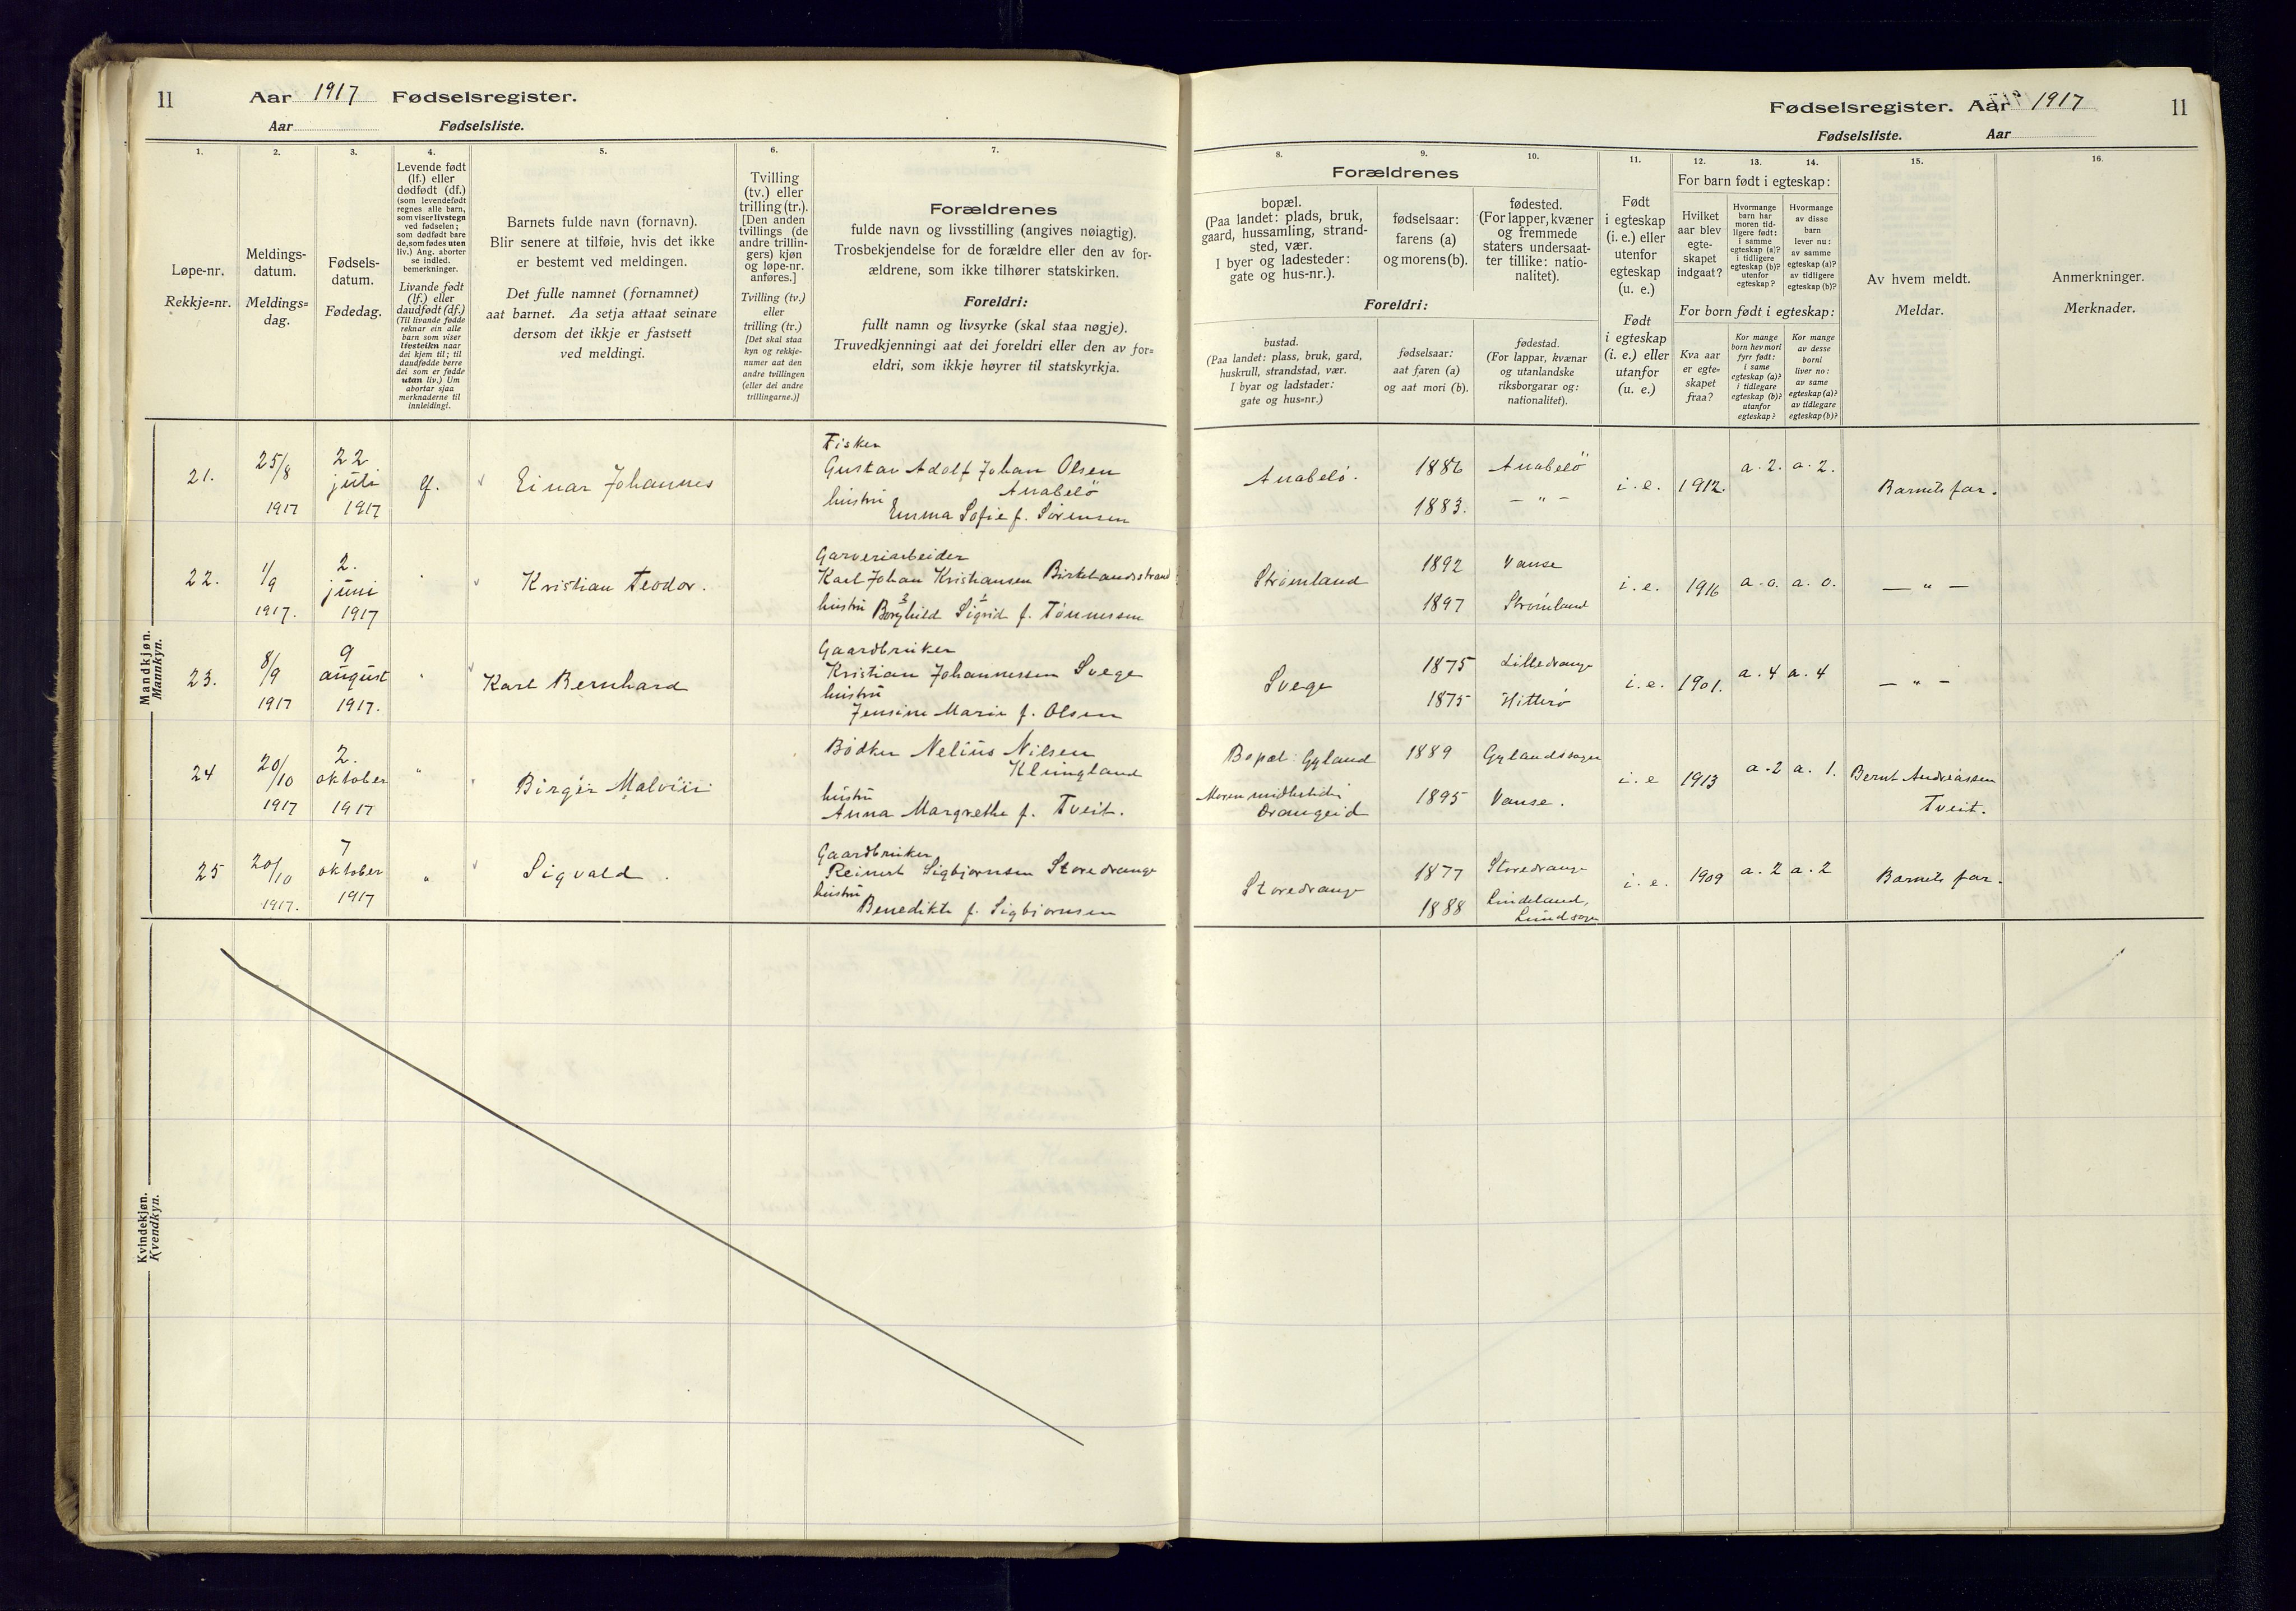 11 Aar 1917 Fødselsregister.
Aar Fødselsliste.
Fødselsregister. Aar 1917 11
Fødselsliste. Aar
1. 2. 3. 4. 5. 6. 7.
Løpe-nr.
Rekkje=nr.
Meldings-
datum.
Meldings=
dag.
Fødsels-
datum.
Fødedag.
Levende født
(lf.) eller
dødfødt (df.)
(som levendefødt
regnes alle barn,
som viser livstegn
ved fødselen;
som dødfødt bare
de, som fødes uten
liv.) Ang. aborter
se indled.
bemerkninger.
Livande født
(lf.) eller
daudfødt (df.)
(Til livande fødde
reknar ein alle
barn som viser
livsteikn naar
dei kjem til; til
daudfødde berre
dei som er fødde
utan liv.) Um
abortar sjaa
merknaderne til
innleidingi.
Barnets fulde navn (fornavn).
Blir senere at tilføie, hvis det ikke
er bestemt ved meldingen.
Det fulle namnet (fornamnet)
aat barnet. Aa setja attaat seinare
dersom det ikkje er fastsett
ved meldingi.
Tvilling
(tv.) eller
trilling (tr.).
[Den anden
tvillings (de
andre trillin-
gers) kjøn
og løpe-nr.
anføres.]
Tvilling (tv.)
eller
trilling (tr.)
[Det skal staa
kyn og rekkje-
numer aat den
andre tvillingen
(eller dei andre
trillingarne.)]
Forældrenes
fulde navn og livsstilling (angives nøiagtig).
Trosbekjendelse for de forældre eller den av for-
ældrene, som ikke tilhører statskirken.
Foreldri:
fullt namn og livsyrke (skal staa nøgje).
Truvedkjenningi aat dei foreldri eller den av for=
eldri, som ikkje høyrer til statskyrkja.
8. 9. 10. 11. 12. 13. 14. 15. 16.
Forældrenes
bopæl.
(Paa landet: plads, bruk,
gaard, hussamling, strand-
sted, vær.
I byer og ladesteder:
gate og hus-nr.).
fødselsaar:
farens (a)
og morens (b).
fødested.
(For lapper, kvæner
og fremmede
staters undersaat-
ter tillike: natio-
nalitet).
Foreldri:
bustad.
(Paa landet: plass, bruk, gard,
huskrull, strandstad, vær.
I byar og ladstader:
gate og hus=nr.)
fødselsaar:
aat faren (a)
og aat mori (b).
fødestad.
(For lappar, kvænar
og utanlandske
riksborgarar og:
nationalitet).
Født
i egteskap
(i. e.) eller
utenfor
egteskap
(u. e.)
Født
i egteskap
(i. e.) eller
utanfor
(u. e.)
For barn født i egteskap:
Hvilket
aar blev
egte-
skapet
indgaat?
Hvormange
barn har
moren tid-
ligere født:
i samme
egteskap (a)?
i tidligere
egteskap (b)?
utenfor
egteskap?
Hvormange
av disse
barn
lever nu:
av samme
egteskap (a)?
av tidligere
egteskap (b)?
For born født i egteskap:
Kva aar
er egte=
skapet
fraa?
Kor mange
born hev mori
fyrr født:
i same
egteskap (a)?
i tidlegare
egteskap (b)?
utanfor
egteskap?
Kor mange
av desse
borni
liver no:
av same
egteskap (a)?
av tidlegare
egteskap (b)?
Av hvem meldt.
Meldar.
Anmerkninger.
Merknader.
Mandkjøn.
Mannkyn.
21. 25/8 1917 22 juli 1917 lf. Einar Johannes
Fisker
Gustav Adolf Johan Olsen
Anabelö
hustru
Emma Sofie f. Sørensen
Anabelø. 1886 Anabelö
1883. — " —
i. e. 1912. a. 2. a. 2. Barnets far.
22. 1/9 1917. 2. juni 1917 Kristian Teodor.
Garveriarbeider
Karl Johan Kristiansen Birkelandsstrand
3 1
hustru Borghild Sigrid f. Tønnessen
Strømland 1892 Vanse
1897 Strømland
i. e. 1916 a. 0. a. 0. — " —
23. 8/9 1917 9 august 1917. " Karl Bernhard
Gaardbruker
Kristian Johannessen Svege
hustru
Jensine Marie f. Olsen
Svege 1875 Lilledrange
1875 Hitterø
i. e. 1901. a. 4 a. 4 — " —
24 20/10 1917 2. oktober 1917 " Birger Malviu
Bødker Nelius Nilsen
Klungland
hustru
Anna Margrethe f. Tveit.
Bopæl: Gyland 1889 Gylandsogn
Moren midlertidi
Drangeid 1895 Vanse.
i. e 1913 a. 2 a. 1. Bernt Andreassen
Tveit.
25 20/10 1917. 7 oktober 1917 " Sigvald.
Gaardbruker
Reinert Sigbjørnsen Storedrange
hustru
Benedikte f. Sigbjørnsen
Storedrange 1877 Storedrange
1888 Lindeland,
Lundsogn
i. e. 1909 a. 2 a. 2 Barnets far.
Kvindekjøn.
Kvendkyn.